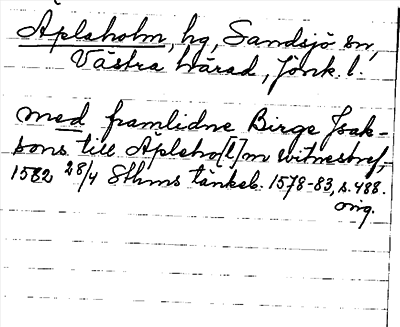 Aplaholm, hg, Sandsjö sn,
Västra härad, Jönk. l.
med framlidne Birge Isak-
sons till Äpleho[l]m witnesbref,
1582 28/4 Sthms tänkeb. 1578-83, s. 488.
orig.